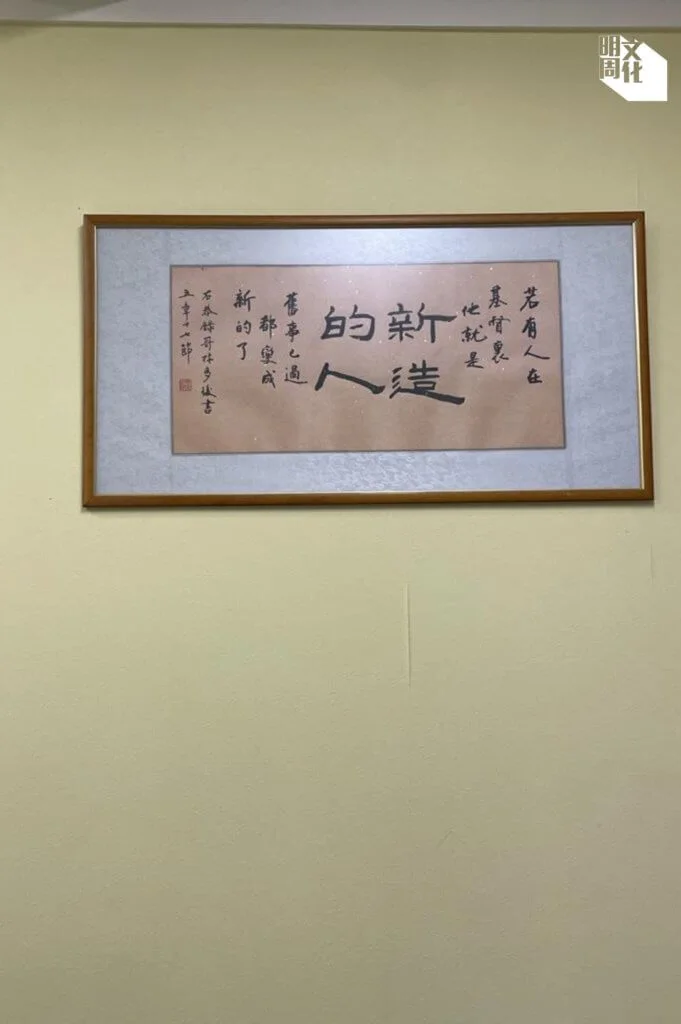 明周
文化
若有人在
基督裏
他就是
新造
的人
舊事已過
都變成
新的了
右恭錄哥林多後書
五章十七節